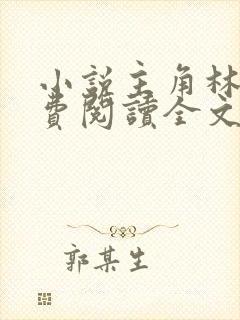 小説主角林
費閱讀全文
郭某生